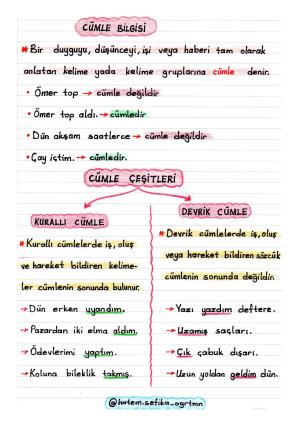 CÜMLE BİLGİSİ
* Bir duyguyu, düşünceyi, işi veya haberi tam olarak
anlatan kelime yada kelime gruplarına cümle denir.
• Ömer top → cümle değildir
• Ömer top aldı. → cümledir
• Dün akşam saatlerce → cümle değildir
• Çay içtim. → cümledir.
CÜMLE ÇEŞİTLERİ
KURALLI CÜMLE
* Kurallı cümlelerde iş, oluş
ve hareket bildiren kelime-
ler cümlenin sonunda bulunur.
→ Dün erken uyandım.
→ Pazardan iki elma aldım.
→ Ödevlerimi yaptım.
→ Koluna bileklik takmış.
DEVRİK CÜMLE
* Devrik cümlelerde iş, oluş
veya hareket bildiren sözcük
cümlenin sonunda değildir.
→ Yazı yazdım deftere.
→ Uzamış saçları.
→ Çık çabuk dışarı.
→ Uzun yoldan geldim dün.
@hatem.sefika_ogrtmn